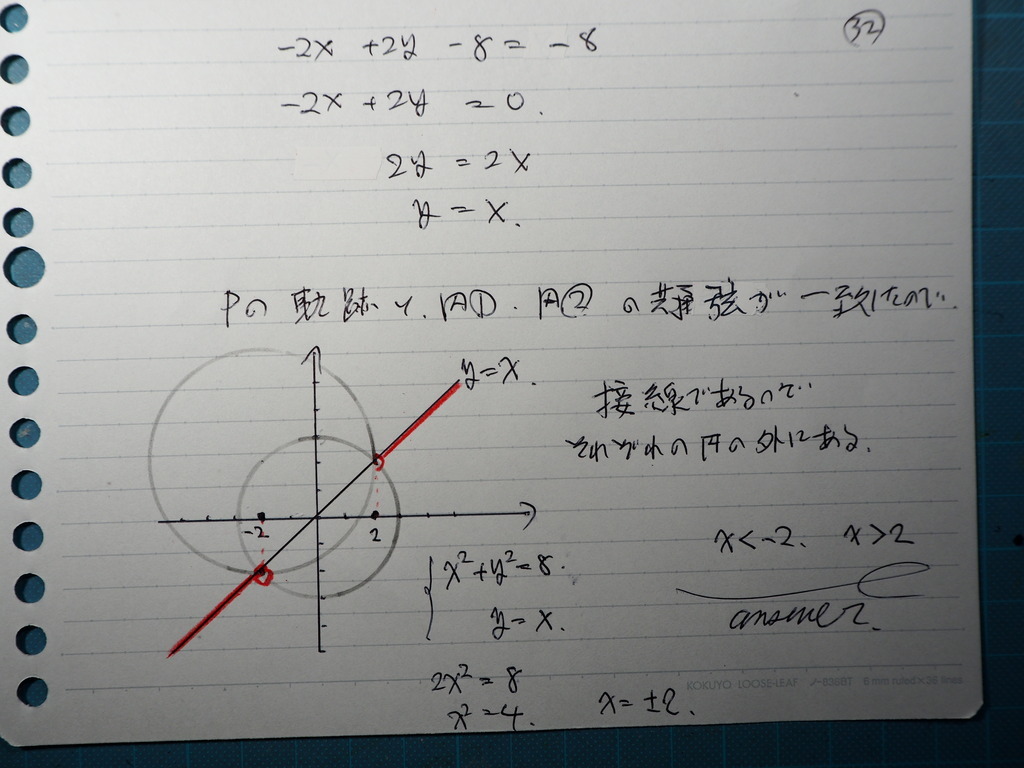 32
-2x +2y -8 = -8
-2x +2y = 0.
2y = 2x
y = x.
Pの軌跡と、円①・円②の共通弦が一致したので
y=x.
接線であるので
それぞれの円の外にある.
-2
2
x<-2. x>2
answer.
x²+y²=8.
y=x.
2x²=8
x²=4.
x=±2.
KOKUYO LOOSE-LEAF ノ-836BT 6 mm ruled×36 lines